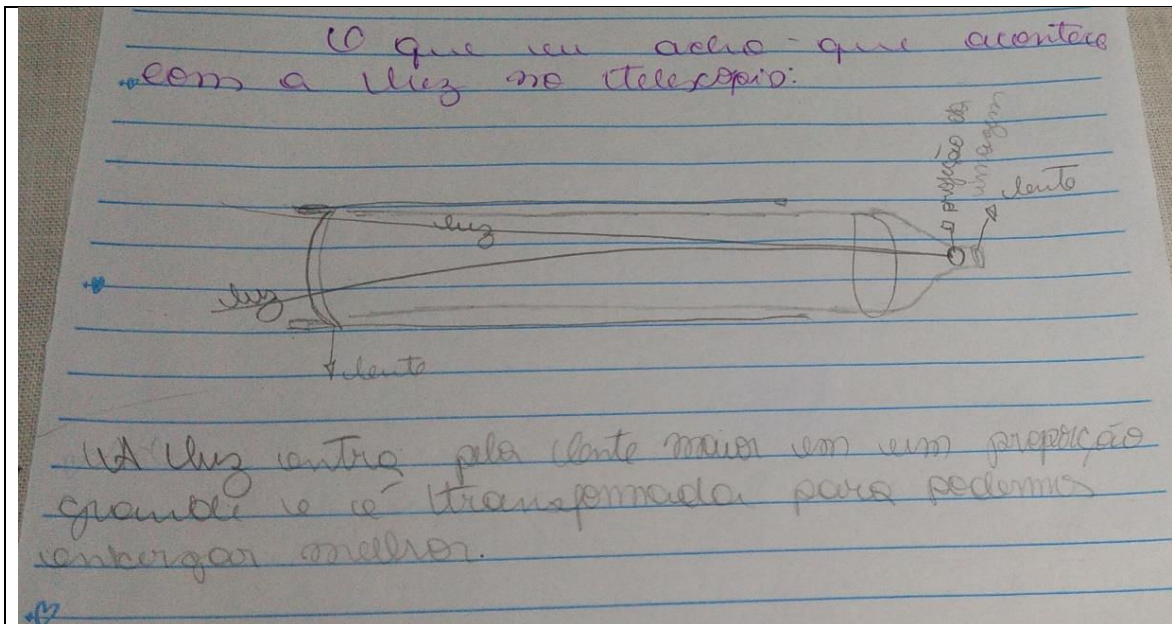 O que eu acho que acontece
com a luz no telescópio:
projeção da
imagem
lente
luz
luz
lente
A luz entra pela lente maior em um proporção
grande e é transformada para podermos
enxergar melhor.